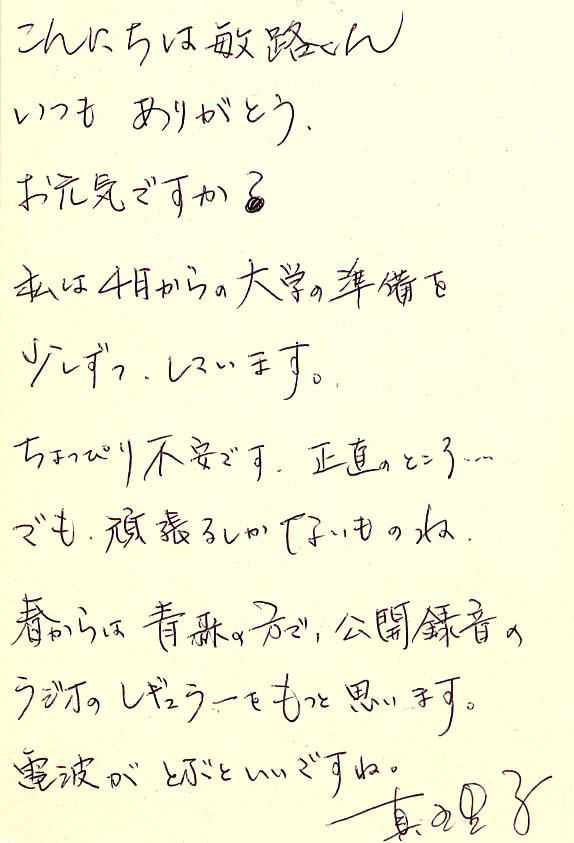 こんにちは敏路くん
いつも ありがとう.
お元気ですか?
私は4月からの大学の準備を
少しずつ. しています。
ちょっぴり不安です. 正直のところ…
でも. 頑張るしかないものね.
春からは 青森の方で, 公開録音の
ラジオのレギュラーをもつと思います。
電波が とぶといいですね。
真理子